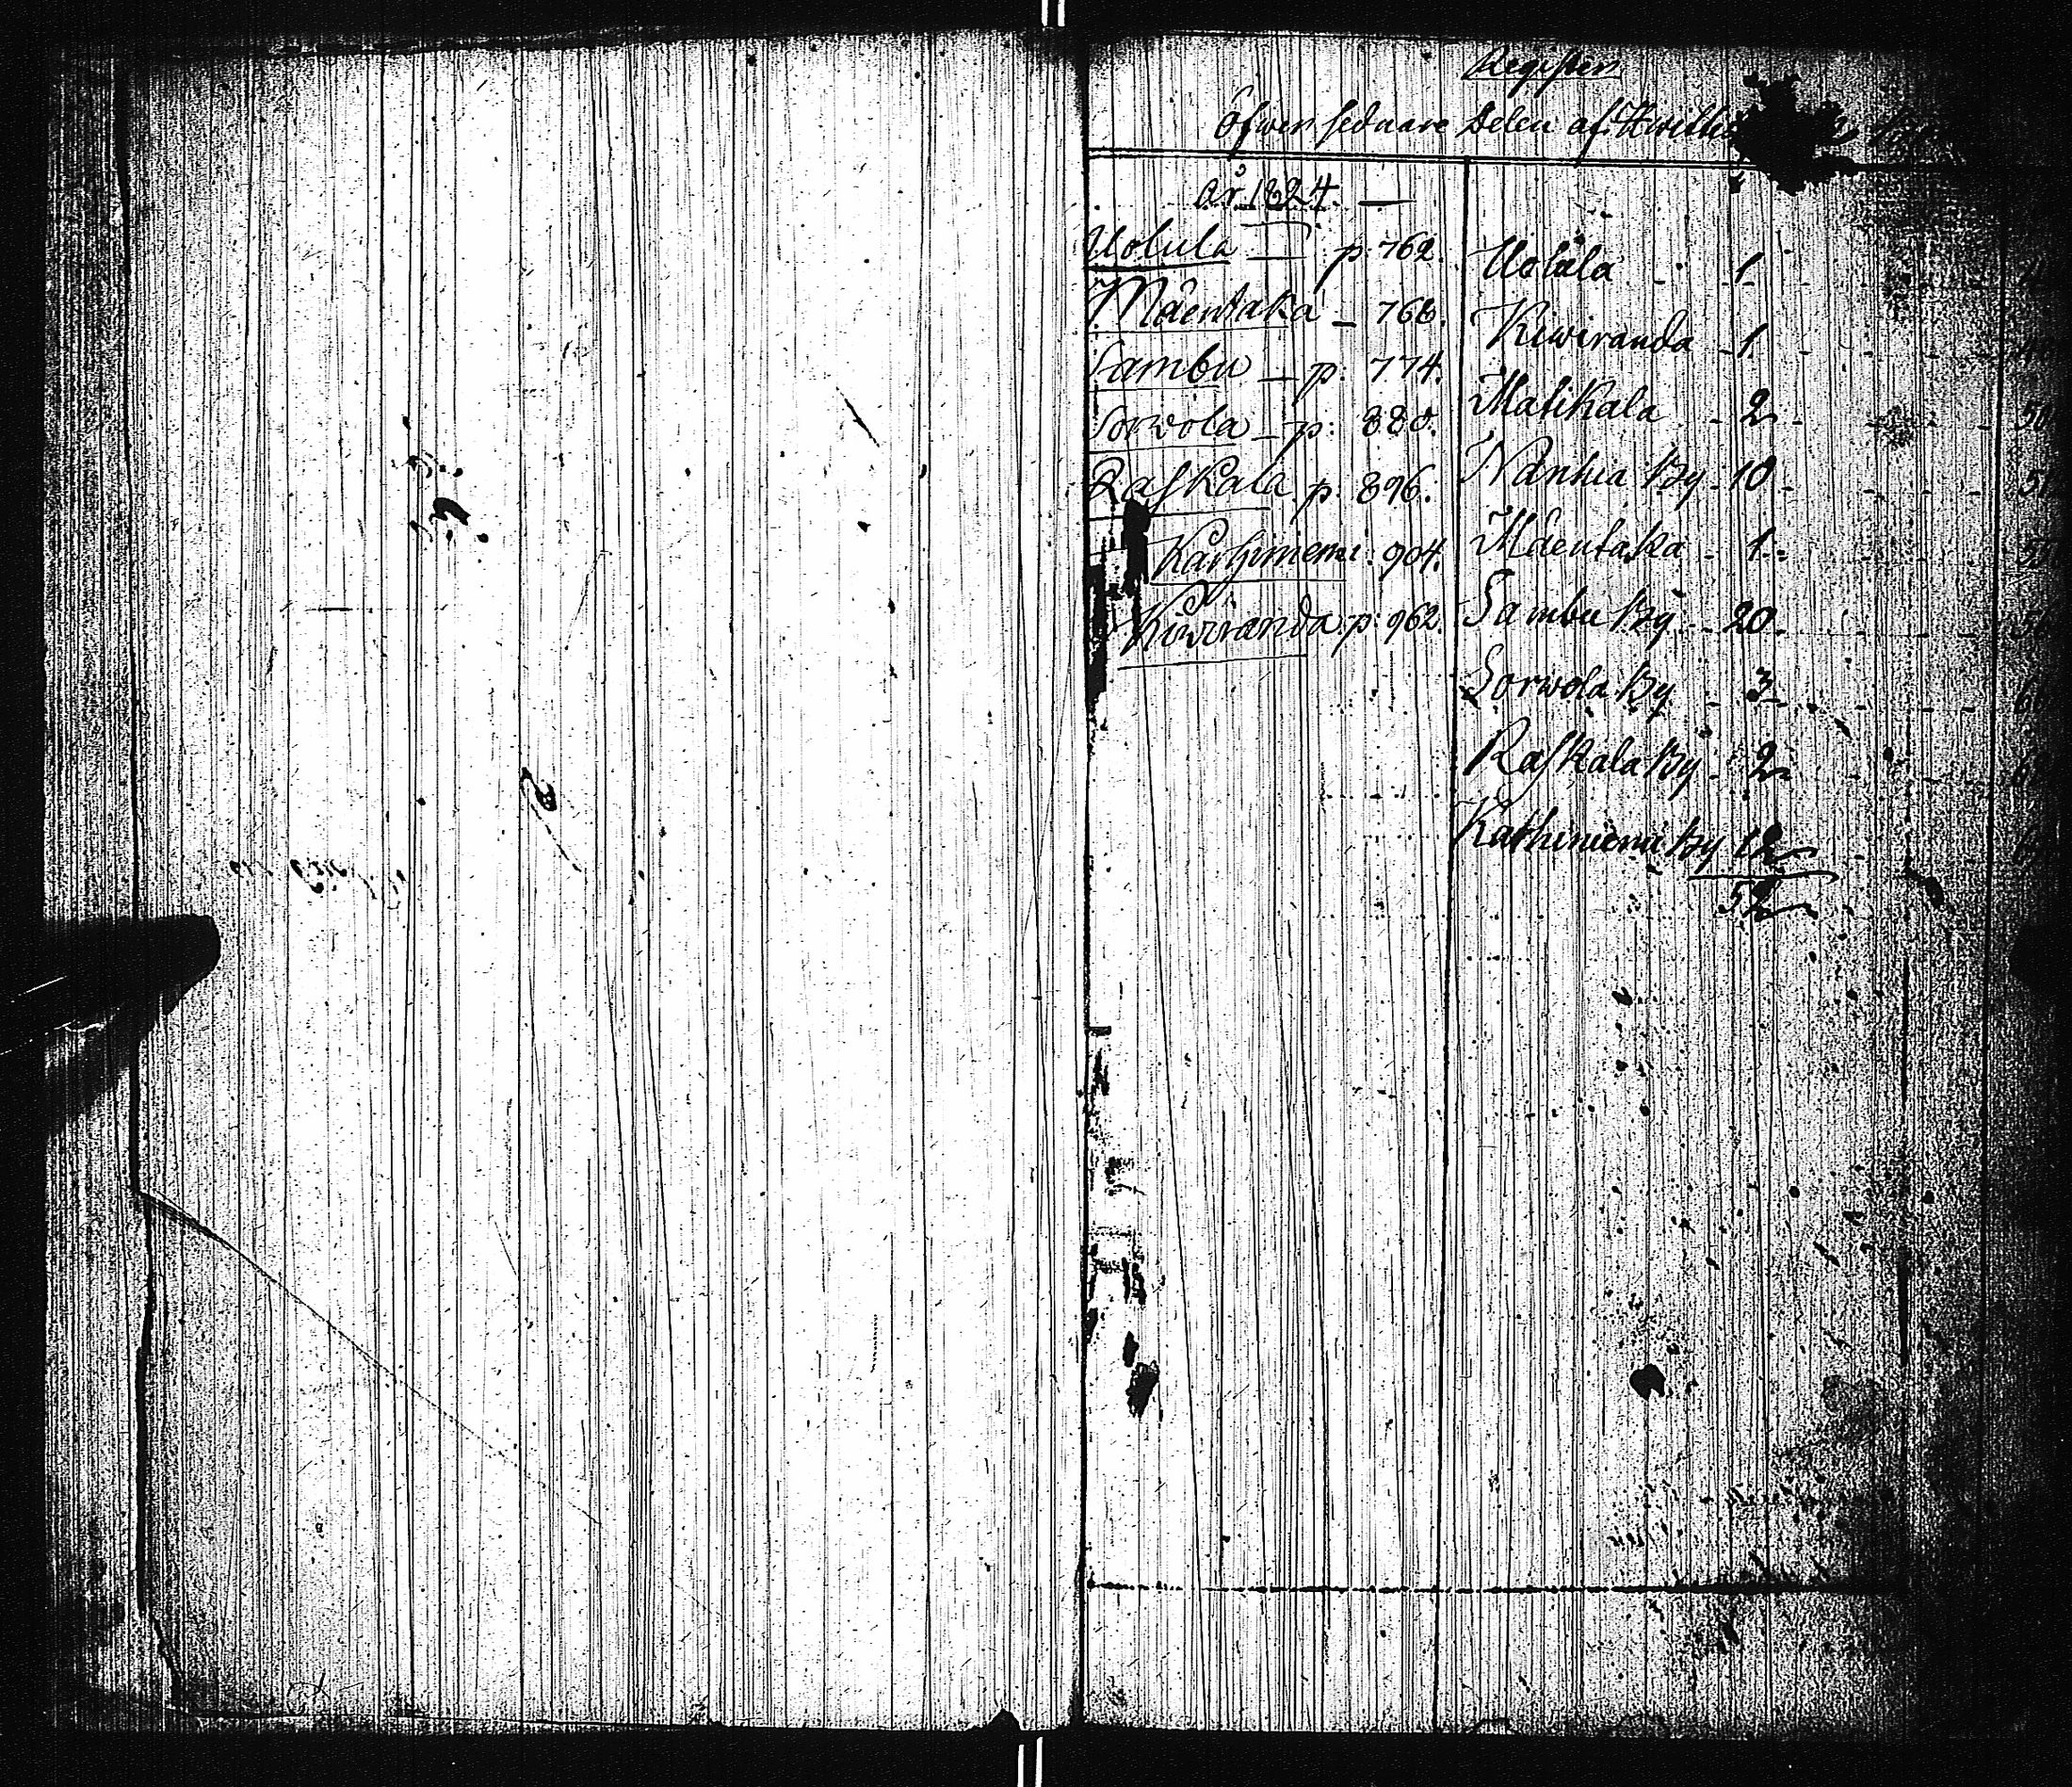 Register
Öfwer sednare Delen af
år 1824. —
Uolula — p. 762.
Mäentaka — 766.
Sambu — p. 774.
Sorvola — p: 880.
Raskala p. 896.
Karhiniemi: 904.
Kiviranda. p: 962.
Uolala - - 1
Kiwiranda - 1
Matikala - 2
Nanhia By - 10
Mäentaka - 1
Sambu By - 20
Sorwola By - 3
Raskala By - 2
Karhiniemi By 12
52